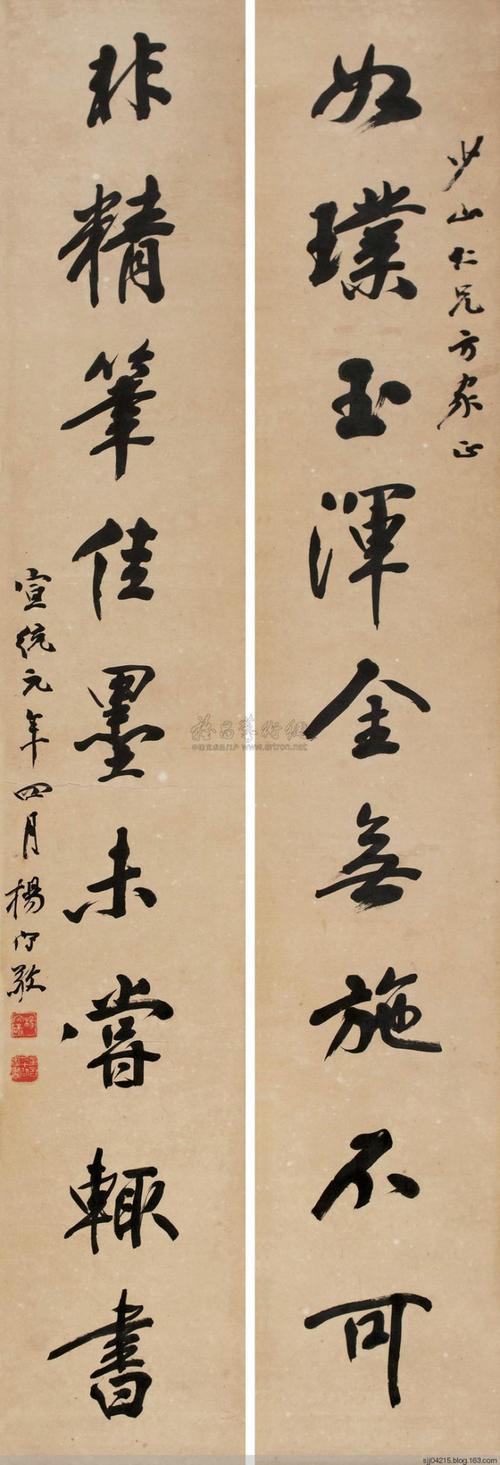 少山仁兄方家正
如璞玉渾金無施不可
非精筆佳墨未嘗輒書
宣統元年四月楊守敬
www.artron.net
sjj04215.blog.163.com